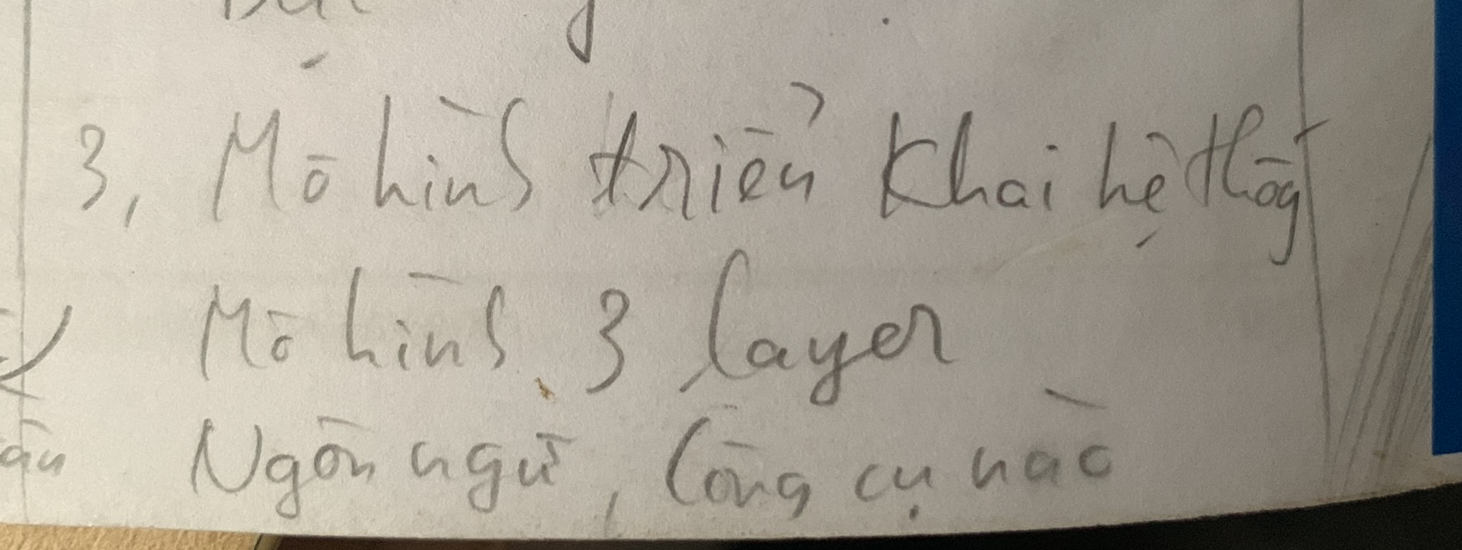 3, Mô hình triển khai hệ thống
Mô hình 3 layer
Ngôn ngữ, Công cụ nào